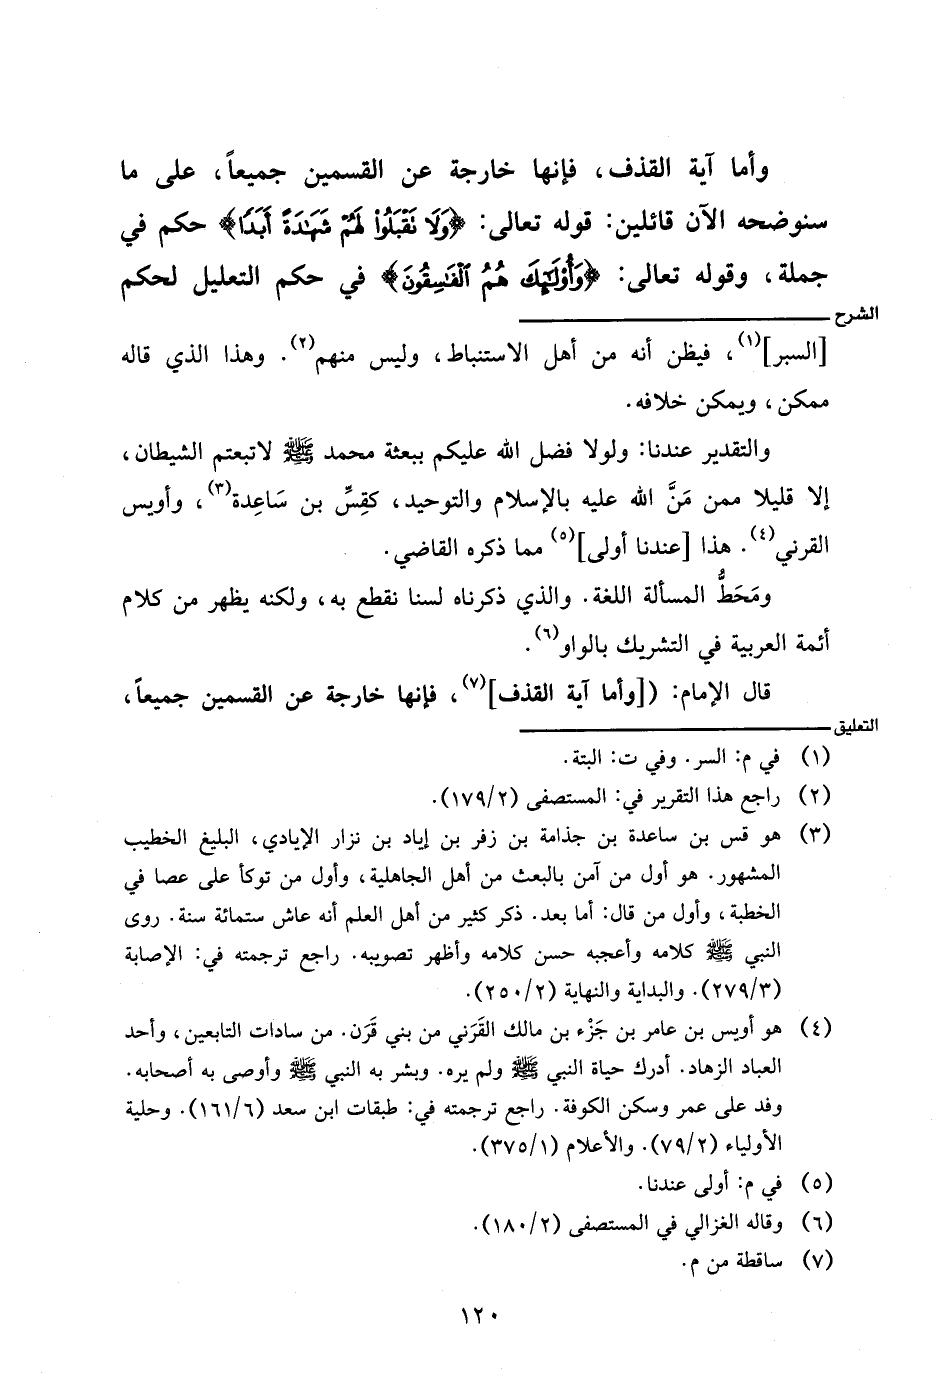 وأما آية القذف، فإنها خارجة عن القسمين جميعاً، على ما
سنوضحه الآن قائلين: قوله تعالى: ﴿وَلَا تَقْبَلُوا۟ لَهُمْ شَهَـٰدَةً أَبَدًا﴾ حكم في
جملة، وقوله تعالى: ﴿وَأُو۟لَـٰٓئِكَ هُمُ ٱلْفَـٰسِقُونَ﴾ في حكم التعليل لحكم
الشرح
[السبر](١)، فيظن أنه من أهل الاستنباط، وليس منهم(٢). وهذا الذي قاله
ممكن، ويمكن خلافه.
والتقدير عندنا: ولولا فضل الله عليكم ببعثة محمد ﷺ لاتبعتم الشيطان،
إلا قليلا ممن مَنَّ الله عليه بالإسلام والتوحيد، كقِسِّ بن سَاعِدة(٣)، وأويس
القرني(٤). هذا [عندنا أولى](٥) مما ذكره القاضي.
ومَحَطُّ المسألة اللغة. والذي ذكرناه لسنا نقطع به، ولكنه يظهر من كلام
أئمة العربية في التشريك بالواو(٦).
قال الإمام: ([وأما آية القذف](٧)، فإنها خارجة عن القسمين جميعاً،
التعليق
(١) في م: السر. وفي ت: البتة.
(٢) راجع هذا التقرير في: المستصفى (١٧٩/٢).
(٣) هو قس بن ساعدة بن جذامة بن زفر بن إياد بن نزار الإيادي، البليغ الخطيب
المشهور. هو أول من آمن بالبعث من أهل الجاهلية، وأول من توكأ على عصا في
الخطبة، وأول من قال: أما بعد. ذكر كثير من أهل العلم أنه عاش ستمائة سنة. روى
النبي ﷺ كلامه وأعجبه حسن كلامه وأظهر تصويبه. راجع ترجمته في: الإصابة
(٢٧٩/٣). والبداية والنهاية (٢٥٠/٢).
(٤) هو أويس بن عامر بن جَزْء بن مالك القَرَني من بني قَرَن. من سادات التابعين، وأحد
العباد الزهاد. أدرك حياة النبي ﷺ ولم يره. وبشر به النبي ﷺ وأوصى به أصحابه.
وفد على عمر وسكن الكوفة. راجع ترجمته في: طبقات ابن سعد (١٦١/٦). وحلية
الأولياء (٧٩/٢). والأعلام (٣٧٥/١).
(٥) في م: أولى عندنا.
(٦) وقاله الغزالي في المستصفى (١٨٠/٢).
(٧) ساقطة من م.
١٢٠